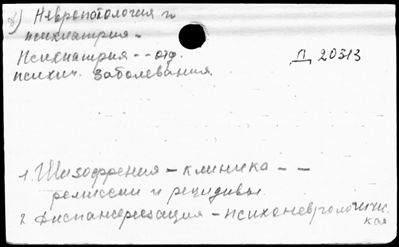 2) Невропатология и
психиатрия.
Психиатрия -- отд.
психич. заболевания
Д 20313
1. Шизофрения - клиника --
ремиссии и рецидивы.
2. Диспансеризация - психоневрологичес.
кая